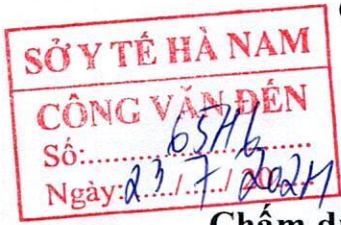 SỞ Y TẾ HÀ NAM
CÔNG VĂN ĐẾN
Số:
Ngày: 23/7/2024
Chấm